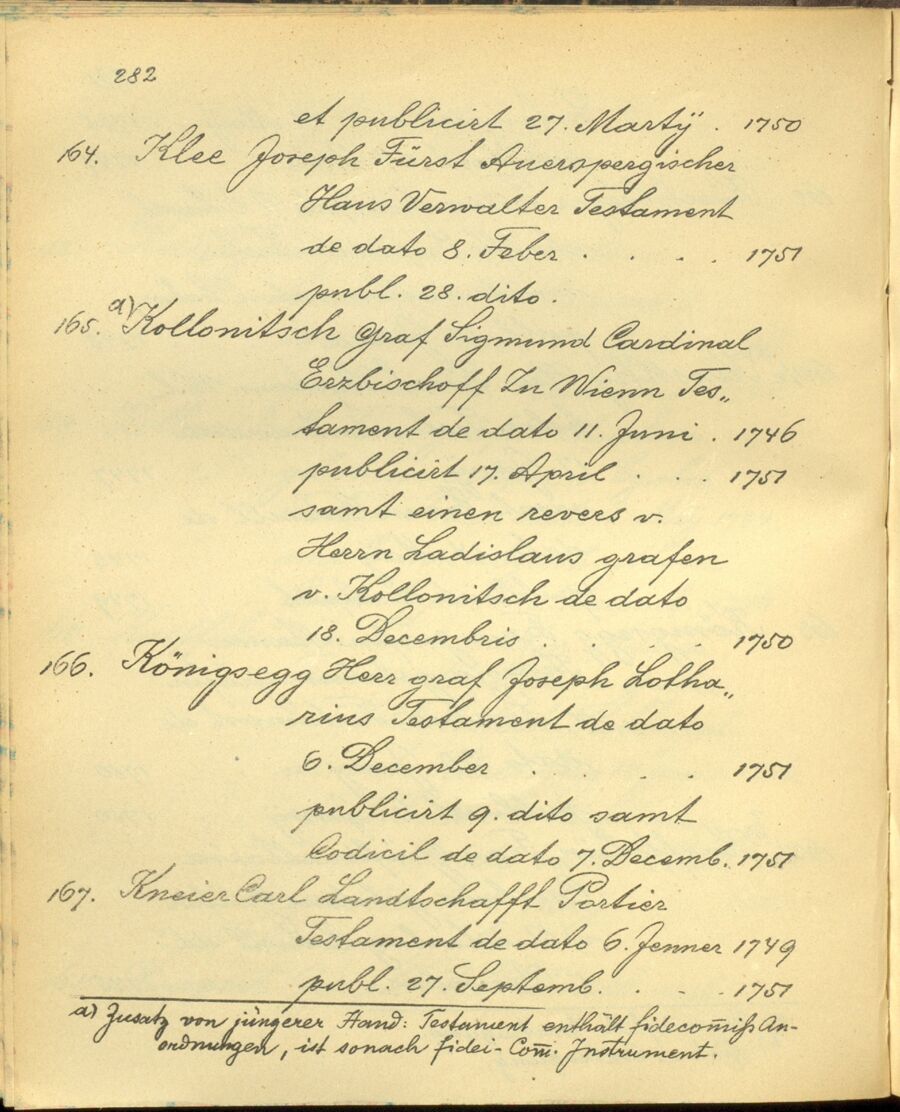 282
et publicirt 27. Martÿ . 1750
164. Klee Joseph Fürst Auerspergischer
Haus Verwalter Testament
de dato 8. Feber . . . . 1751
publ. 28. dito.
165. a) Kollonitsch Graf Sigmund Cardinal
Erzbischoff Zu Wienn Tes„
tament de dato 11. Juni . 1746
publicirt 17. April . . . 1751
samt einen revers v.
Herrn Ladislaus grafen
v. Kollonitsch de dato
18. Decembris . . . . 1750
166. Königsegg Herr graf Joseph Lotha„
rius Testament de dato
6. December . . . 1751
publicirt 9. dito samt
Codicil de dato 7. Decemb. 1751
167. Kneier Carl Landtschafft Portier
Testament de dato 6. Jenner 1749
publ. 27. Septemb. . . . 1751
a) Zusatz von jüngerer Hand: Testament enthält fidecom̄iß An-
ordnungen, ist sonach fidei-Com̄. Instrument.